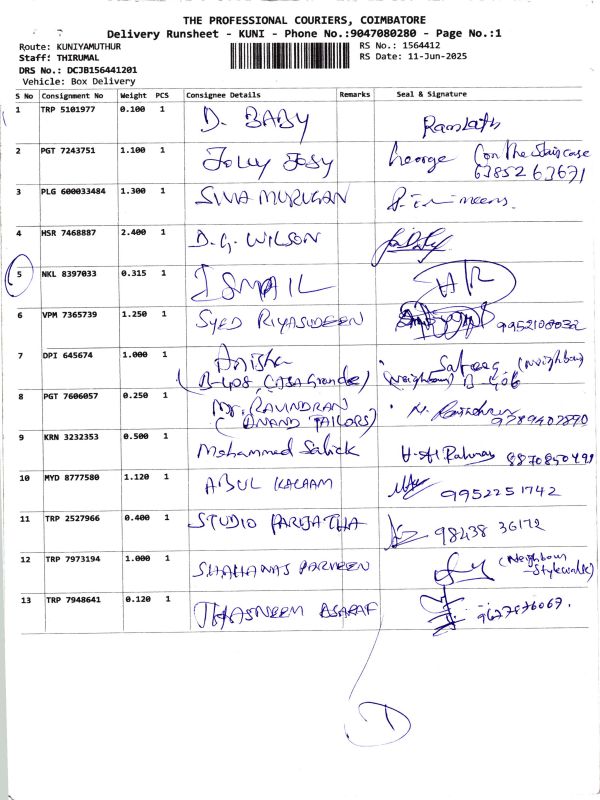 THE PROFESSIONAL COURIERS, COIMBATORE
Delivery Runsheet - KUNI - Phone No.:9047080280 - Page No.:1
Route: KUNIYAMUTHUR
RS No.: 1564412
Staff: THIRUMAL
RS Date: 11-Jun-2025
DRS No.: DCJB156441201
Vehicle: Box Delivery
S No Consignment No Weight PCS Consignee Details Remarks Seal & Signature
1 TRP 5101977 0.100 1 D. BABY
2 PGT 7243751 1.100 1 JOLLY JOSY George (on the Staircase
6385263671
3 PLG 600033484 1.300 1 SIVA MURUGAN
4 HSR 7468887 2.400 1 D.G. WILSON
5 NKL 8397033 0.315 1 ISMAIL
6 VPM 7365739 1.250 1 SYED RIYASUDEEN 9952108032
7 DPI 645674 1.000 1 Anisha (Neighbour)
(B-408, CASA Grande) (Neighbour) B-406
8 PGT 7606057 0.250 1 Mr. RAVINDRAN 9789407890
(ANAND TAILORS)
9 KRN 3232353 0.500 1 Mohammed Salick 8870850499
10 MYD 8777580 1.120 1 ABUL KALAAM 9952251742
11 TRP 2527966 0.400 1 STUDIO PARIJATHA 98438 36172
12 TRP 7973194 1.000 1 SHAHANAS PARVEEN (Neighbour
-Stylewalk)
13 TRP 7948641 0.120 1 THASNEEM ASARAF 9627876067.